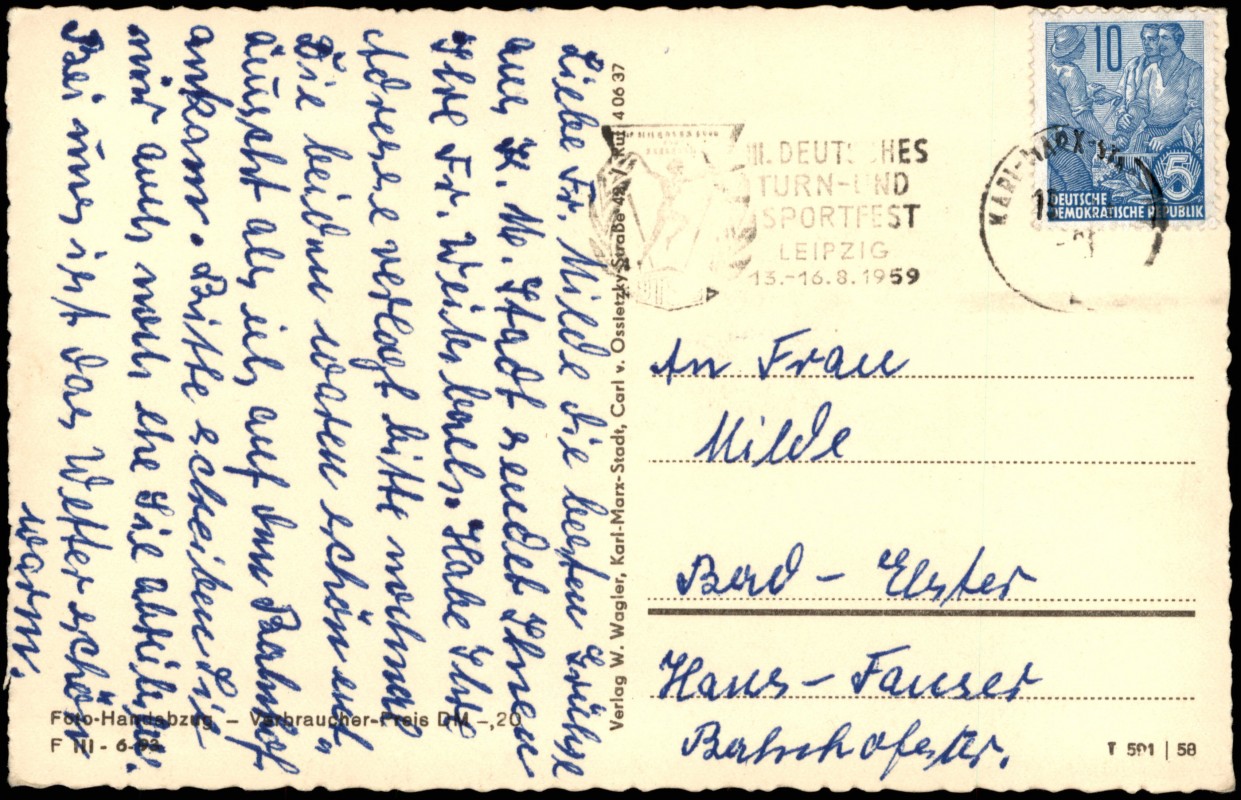 Liebe Fr. Milde die besten Grüße
aus K. M. Stadt sendet Ihnen
Ihre Fr. Habe Ihre
Adresse verlegt bitte nochmal
Die beiden waren schön ent-
äuscht als ich auf dem Bahnhof
ankam. Bitte schreiben Sie
mir auch noch ehe Sie
Bei uns ist das Wetter schön
warm.
Verlag W. Wagler, Karl-Marx-Stadt, Carl v. Ossietzky-Straße 48 / Ruf 4 06 37
III. DEUTSCHES
TURN-UND
SPORTFEST
LEIPZIG
13.-16.8.1959
10
5
DEUTSCHE
DEMOKRATISCHE REPUBLIK
KARL-MARX-
An Frau
Milde
Bad - Elster
Haus - Fauser
Foto-Handabzug – Verbraucher-Preis DM -,20
F III - 6-
T 591 | 58